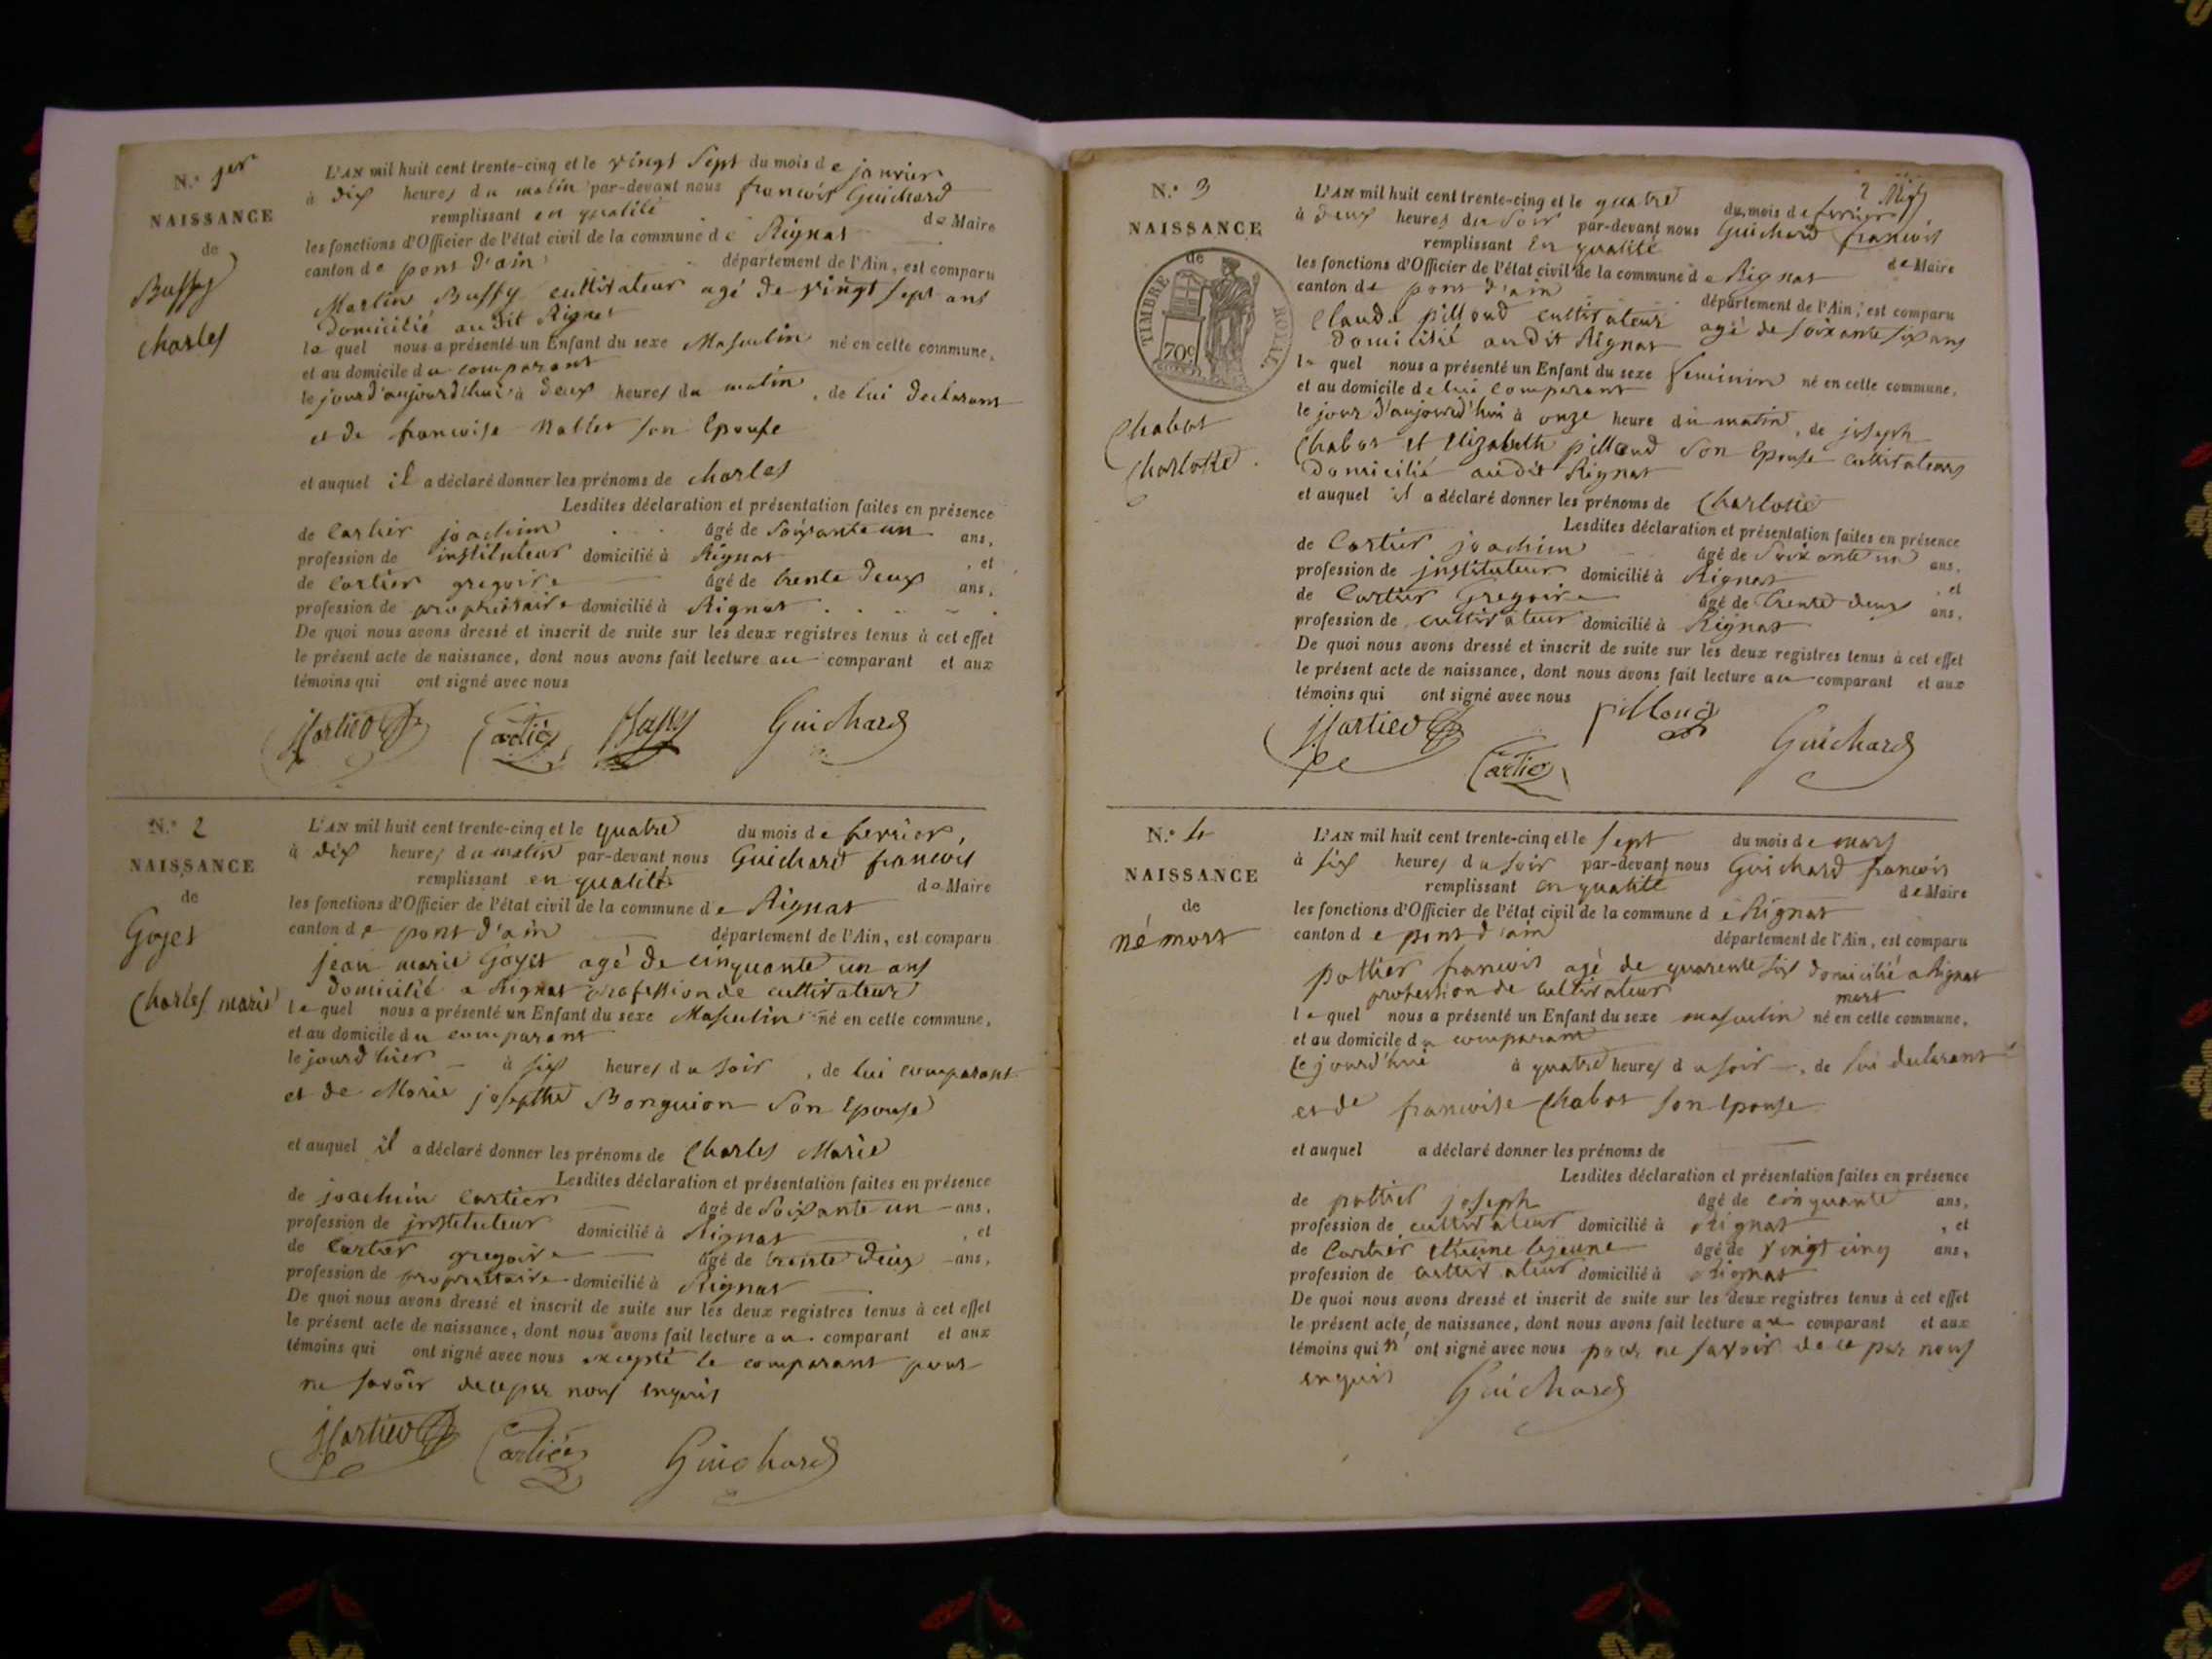 N.º 1er
NAISSANCE
de
Buffy
Charles
L'AN mil huit cent trente-cinq et le vingt sept du mois de janvier
à dix heures du matin par-devant nous francois Guichard
remplissant en qualité de Maire
les fonctions d'Officier de l'état civil de la commune de Rignat
canton de pont d'ain département de l'Ain, est comparu
Martin Buffy cultivateur agé de vingt sept ans
domicilié au dit Rignat
le quel nous a présenté un Enfant du sexe Masculin né en cette commune,
et au domicile du comparant
le jour d'aujourd'hui à deux heures du matin, de lui declarant
et de francoise son Epouse
et auquel il a déclaré donner les prénoms de charles
Lesdites déclaration et présentation faites en présence
de Cartier joachim âgé de Soixante un ans,
profession de instituteur domicilié à Rignat, et
de Cartier gregoire âgé de trente deux ans,
profession de propriétaire domicilié à Rignat
De quoi nous avons dressé et inscrit de suite sur les deux registres tenus à cet effet
le présent acte de naissance, dont nous avons fait lecture au comparant et aux
témoins qui ont signé avec nous
jCartier Cartier Buffy Guichard
N.º 2
NAISSANCE
de
Goyet
Charles marie
L'AN mil huit cent trente-cinq et le quatre du mois de fevrier,
à dix heures du matin par-devant nous Guichard francois
remplissant en qualité de Maire
les fonctions d'Officier de l'état civil de la commune de Rignat
canton de pont d'ain département de l'Ain, est comparu
jean marie Goyet agé de cinquante un ans
domicilié a Rignat profession de cultivateur
le quel nous a présenté un Enfant du sexe Masculin né en cette commune,
et au domicile du comparant
le jour d'hier à six heures du soir, de lui comparant
et de Marie josepthe Bonguion Son Epouse
et auquel il a déclaré donner les prénoms de Charles Marie
Lesdites déclaration et présentation faites en présence
de joachim Cartier âgé de Soixante un ans,
profession de jnstituteur domicilié à Rignat, et
de Cartier gregoire âgé de trente deux ans,
profession de propriettaire domicilié à Rignat
De quoi nous avons dressé et inscrit de suite sur les deux registres tenus à cet effet
le présent acte de naissance, dont nous avons fait lecture au comparant et aux
témoins qui ont signé avec nous excepté le comparant pour
ne savoir de ce par nous enquis
jCartier Cartier Guichard
N.º 3
NAISSANCE
de
TIMBRE ROYAL
70c
Chabot
Charlotte
L'AN mil huit cent trente-cinq et le quatre du mois de fevrier
à deux heures du soir par-devant nous Guichard francois
remplissant En qualité de Maire
les fonctions d'Officier de l'état civil de la commune de Rignat
canton de pont d'ain département de l'Ain, est comparu
Claude pilloud cultivateur agé de soixante six ans
domicilié audit Rignat
le quel nous a présenté un Enfant du sexe feminin né en cette commune,
et au domicile de lui comparant
le jour d'aujourd'hui à onze heure du matin, de joseph
Chabot et Elizabeth pilloud Son Epouse cultivateurs
domicilié audit Rignat
et auquel il a déclaré donner les prénoms de Charlotte
Lesdites déclaration et présentation faites en présence
de Cartier joachim âgé de Soixante un ans,
profession de jnstituteur domicilié à Rignat, et
de Cartier Gregoire âgé de trente deux ans,
profession de cultivateur domicilié à Rignat
De quoi nous avons dressé et inscrit de suite sur les deux registres tenus à cet effet
le présent acte de naissance, dont nous avons fait lecture au comparant et aux
témoins qui ont signé avec nous
jCartier Cartier pilloud Guichard
N.º 4
NAISSANCE
de
né mort
L'AN mil huit cent trente-cinq et le sept du mois de mars
à six heures du soir par-devant nous Guichard francois
remplissant en qualité de Maire
les fonctions d'Officier de l'état civil de la commune de Rignat
canton de pont d'ain département de l'Ain, est comparu
pottier francois agé de quarente six domicilié a Rignat
profession de cultivateur
le quel nous a présenté un Enfant du sexe masculin né mort en cette commune,
et au domicile du comparant
le jourd'hui à quatre heures du soir, de lui declarant
et de francoise Chabot son Epouse
et auquel a déclaré donner les prénoms de
Lesdites déclaration et présentation faites en présence
de pottier joseph âgé de cinquante ans,
profession de cultivateur domicilié à Rignat, et
de Cartier Etienne lejeune âgé de vingt cinq ans,
profession de cultivateur domicilié à Rignat
De quoi nous avons dressé et inscrit de suite sur les deux registres tenus à cet effet
le présent acte de naissance, dont nous avons fait lecture au comparant et aux
témoins qui n'ont signé avec nous pour ne savoir de ce par nous
enquis Guichard